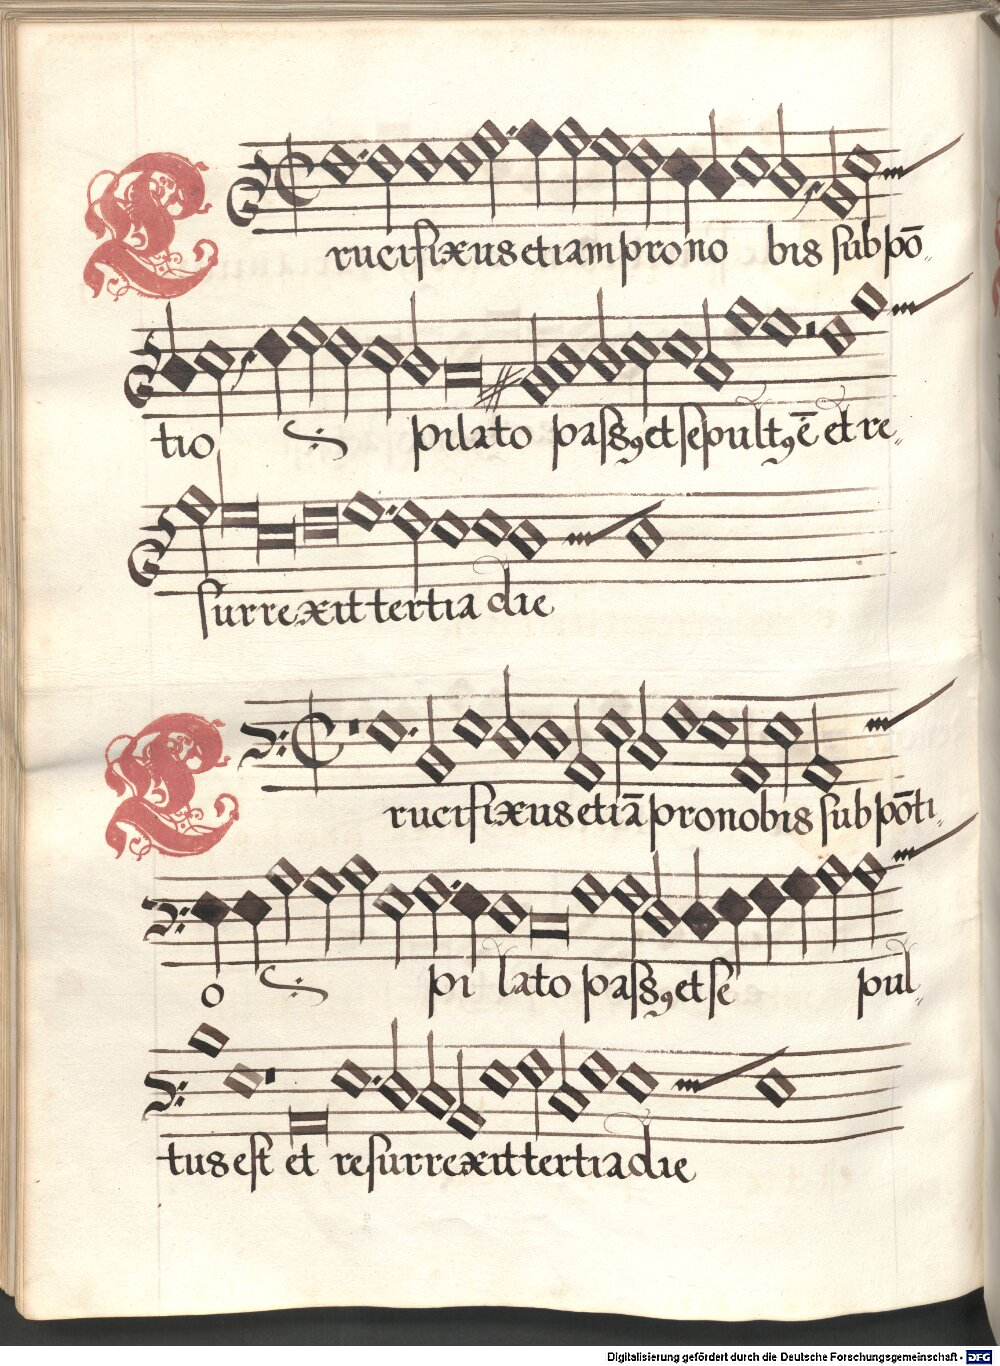 Crucifixus etiam pro no bis sub pō
tio pilato passꝰ et sepultꝰ ē et re
surrexit tertia die
Crucifixus etiā pro nobis sub pōti
o pi lato passꝰ et se pul
tus est et resurrexit tertia die
Digitalisierung gefördert durch die Deutsche Forschungsgemeinschaft - DFG